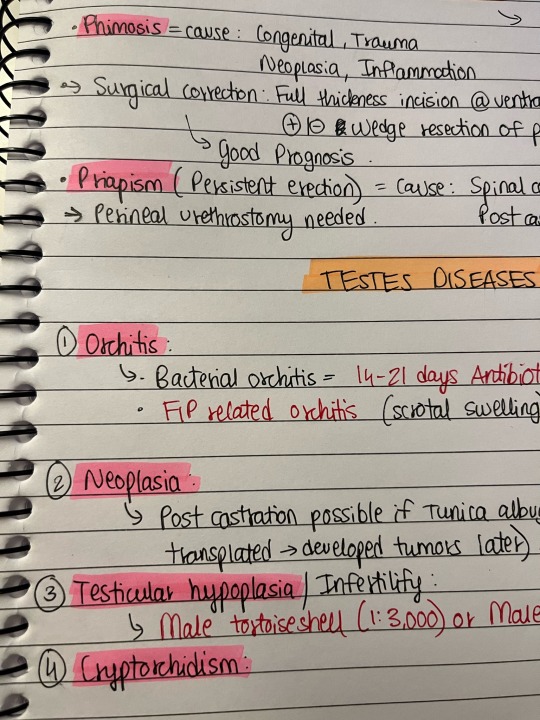 · Phimosis = cause: Congenital, Trauma
Neoplasia, Inflammation
→ Surgical correction: Full thickness incision @ ventra
⊕|⊖ Wedge resection of p
↳ Good Prognosis.
· Priapism (Persistent erection) = cause: Spinal
→ Perineal urethrostomy needed. Post ca
TESTES DISEASES
① Orchitis:
↳· Bacterial orchitis = 14-21 days Antibiot
· FIP related orchitis (scrotal swelling
② Neoplasia:
↳ Post castration possible if Tunica albu
transplated → developed tumors later)
③ Testicular hypoplasia / Infertility:
↳ Male tortoiseshell (1:3,000) or Male
④ Cryptorchidism: